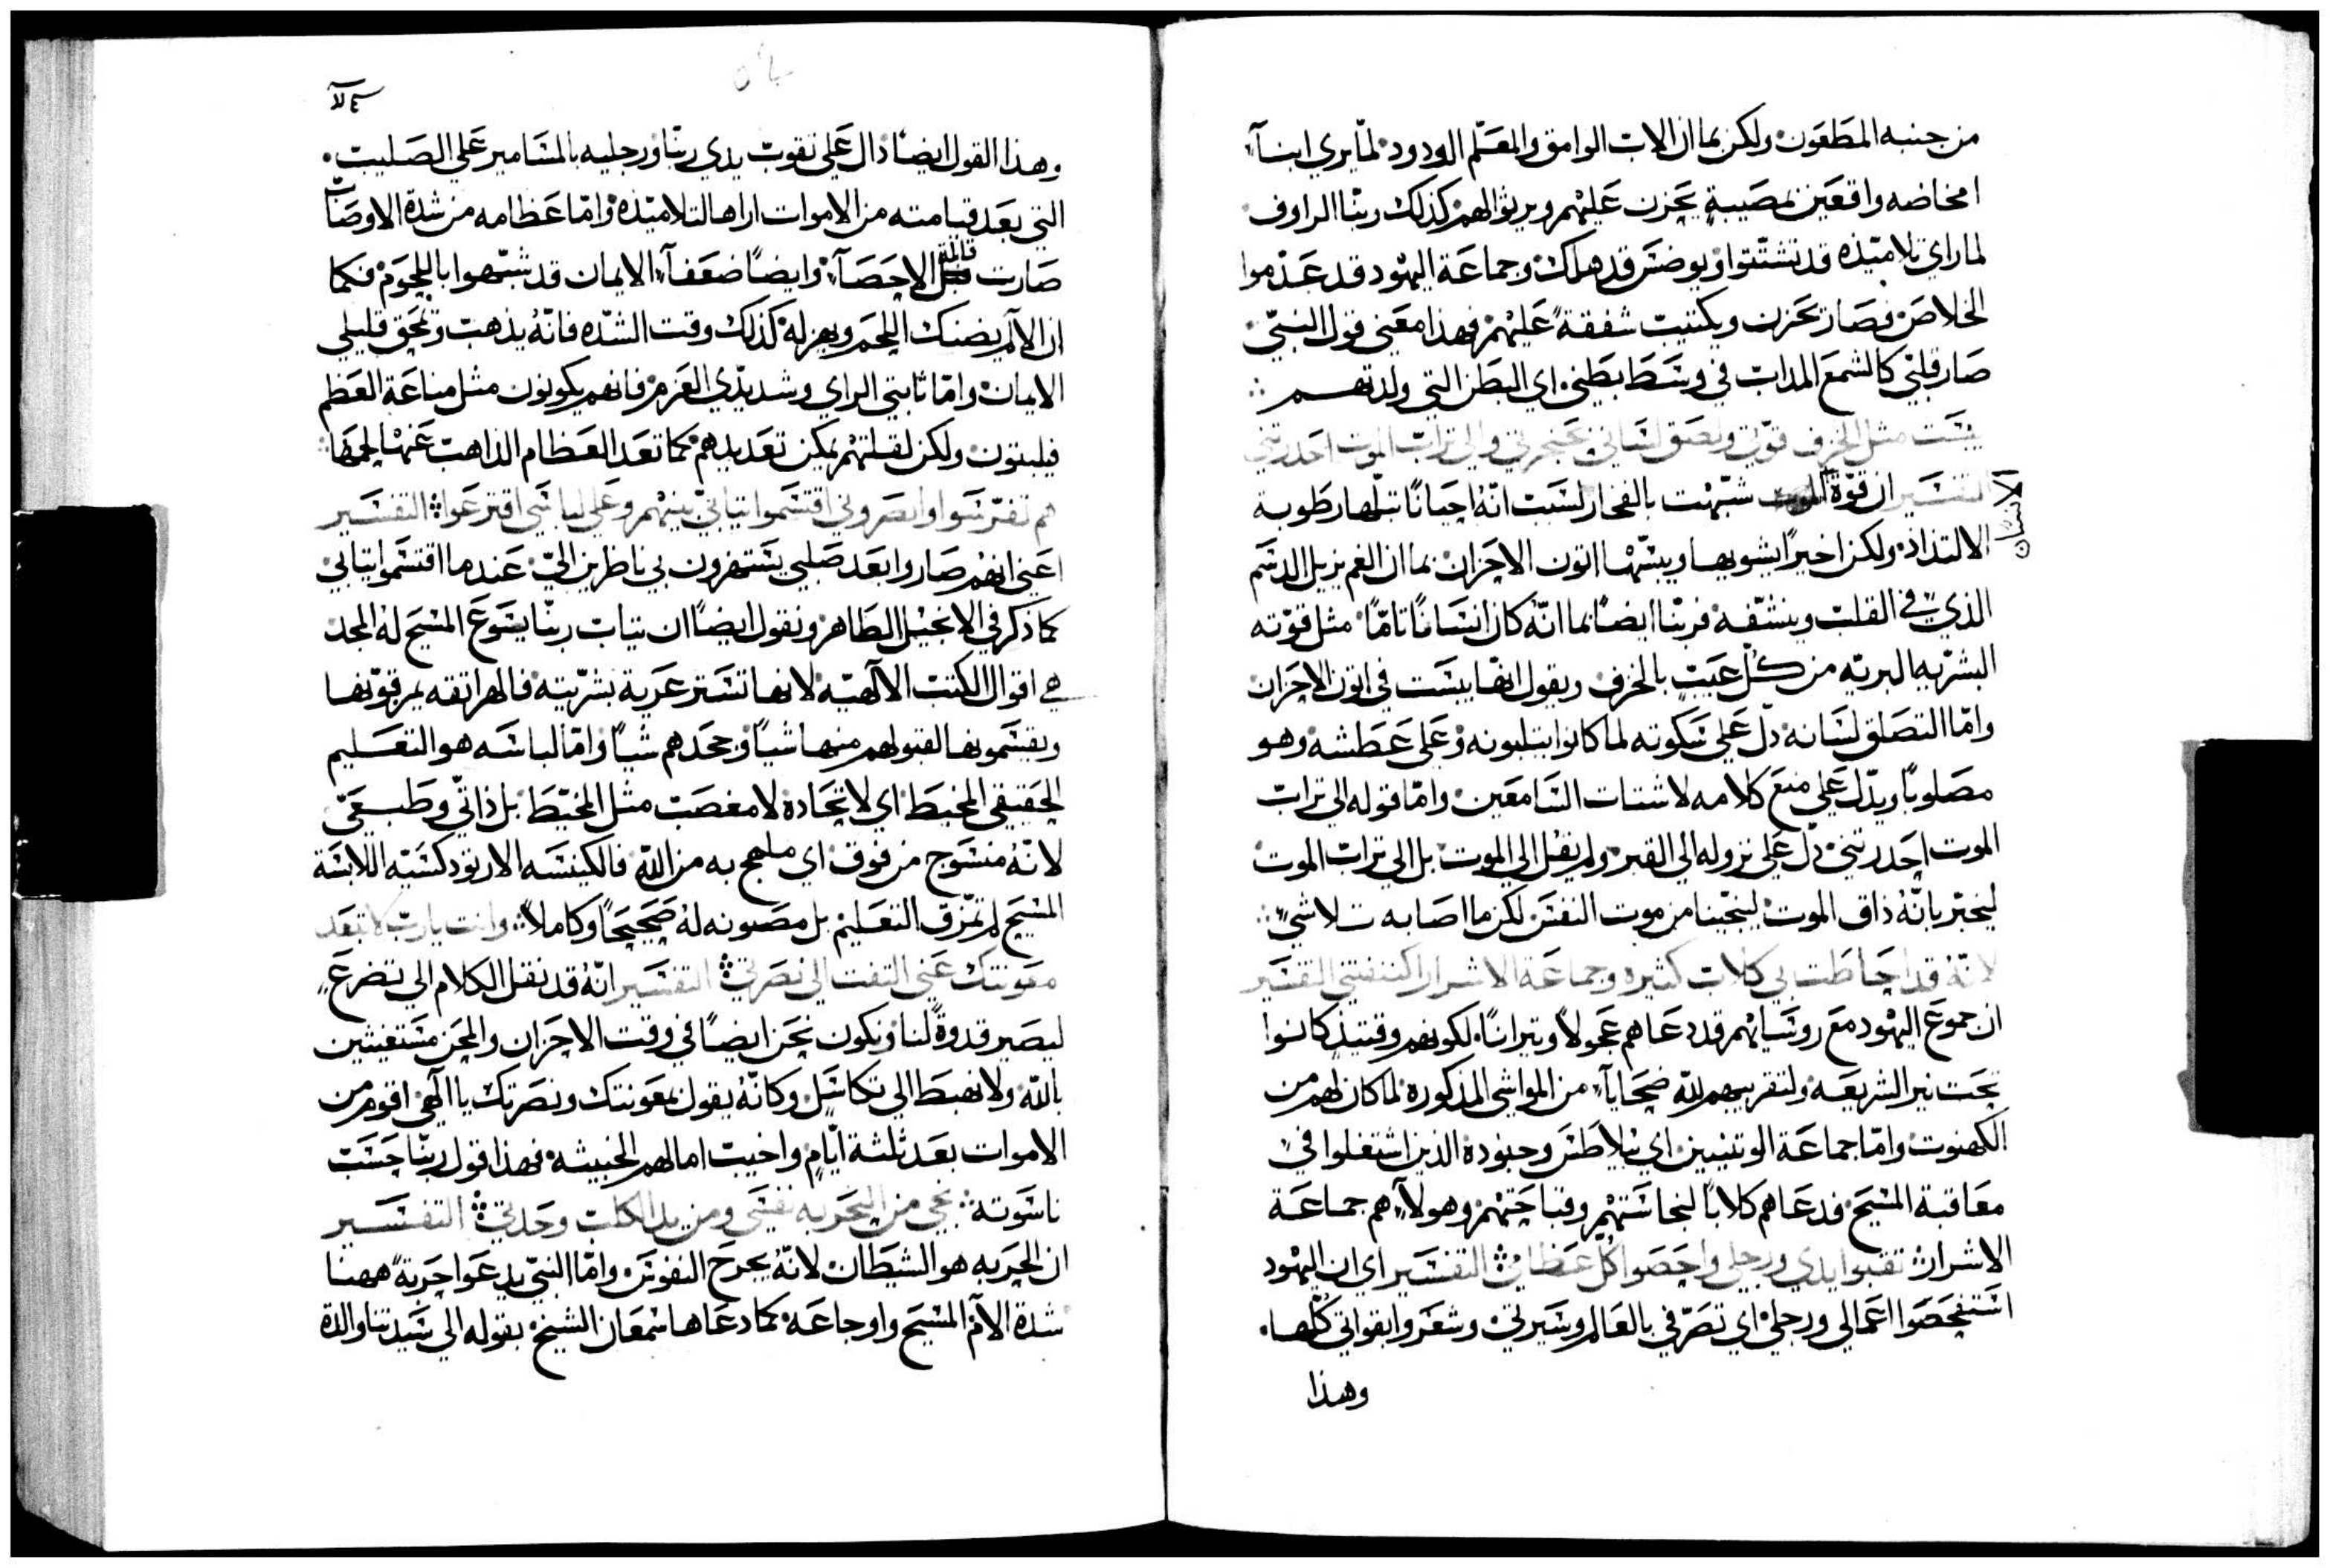 من جنبه المطعون ولكن بما ان الاب الوامق والمعلّم الودود لمّا يري ابنآء
امخاضه واقعين بمصيبةٍ يحزن عليهم ويرثوا لهم كذلك ربّنا الراوف
لما راي تلاميذه قد تشتّتوا ويوضس قد هلك وجماعة اليهود قد عدموا
الخلاص فصار يحزن ويكتيب شفقةً عليهم فهذا معني قول النبيّ
صار قلبي كالشمع المداب في وسط بطني اي البطن التي ولدتهم
يبست مثل الخزف قوّتي ولصق لساني بحنجرتي والي تراب الموت احدرتني
التفسير ان قوّة شبّهت بالفخار لسبب انّه احيانًا تبلّها رطوبة
الانسان
الالتذاذ ولكن اخيرًا يشويها ويبسّها اتون الاحزان بما ان الغم يزيل الدسم
الذي في القلب وينشّفه فربّنا ايضًا بما انّه كان انسانًا تامًّا مثل قوّته
البشريه البريّه من كل عيبٍ بالخزف ويقول انها يبست في اتون الاحزان
وامّا التصاق لسانه دلّ علي سكوته لما كانوا يتلبونه وعلي عطشه وهو
مصلوبًا ويدلّ علي منع كلامه لاشتات السامعين وامّا قوله الي تراب
الموت احدرتني دلّ علي نزوله الي القبر ولم يقل الي الموت بل الي تراب الموت
ليخبر بانّه ذاق الموت لينجّينا من موت النفس لكن ما اصابه تلاشي
لانّه قد احاطت بي كلاب كثيره وجماعة الاشرار اكتنفتني التفسير
ان جموع اليهود مع روسايهم قد دعاهم عجولاً وتيرانًا لكونهم وقتيذٍ كانوا
تحت نير الشريعه ولتقريبهم لله ضحايآء من المواشي المذكوره لما كان لهم من
الكهنوت وامّا جماعة الوتنيين اي بيلاطس وجنوده الذين اشتغلوا في
معاقبة المسيح فدعاهم كلابًا لنجاستهم وقباحتهم وهولآء هم جماعة
الاشرار تقبوا يدي ورجلي واحصوا كل عظامي التفسير اي ان اليهود
استفحصوا اعمالي ورجلي اي تصرّفي بالعالم وسيرتي وشعروا بقواتي كلّها
وهذا
وهذا القول ايضًا دال علي تقوب يدي ربّنا ورجليه بالمسامير علي الصليب
التي بعد قيامته من الاموات اراها لتلاميذه وامّا عظامه من شدة الاوصاب
صارت قابلة الاحصآء وايضًا ضعفآء الايمان قد شبّهوا باللحوم فكما
ان الالم يضنك اللحم ويهزله كذلك وقت الشدّه فانّه يذهب ويمحق قليلي
الايمان وامّا ثابتي الراي وشديدّي العزم فانهم يكونون مثل مناعة العظم
فيلبتون ولكن لقلتهم يمكن تعديدهم كما تعد العظام الذاهب عنها لحمها
هم تفرّسوا وابصروني اقتسموا تيابي بينهم وعلي لباسي اقترعوا التفسير
اعني انهم صاروا بعد صلبي يستهزون بي ناظرين اليّ عندما اقتسموا تيابي
كما ذكر في الانجيل الطاهر ونقول ايضًا ان تياب ربّنا يسوع المسيح له المجد
هي اقوال الكتب الالهيّه لانها تستر عرية بشريّته فالهراتقه يمزقونها
ويقسمونها لقبولهم منها شيًا وجحدهم شيًا وامّا لباسه هو التعليم
الحقيقي المخيط اي لاتحاده لا مغصب مثل المخيّط بل ذاتّي وطبيعيّ
لانّه منسوج من فوق اي ملهج به من الله فالكنيسه الارتودكسيّه اللابسة
المسيح لم تمزّق التعليم بل مصونه له صحيحًا وكاملاً وانت يارب لا تبعد
معونتك عني التفت الي نصرتي التفسير انّه قد نقل الكلام الي تضرعٍ
ليصير قدوةً لنا ونكون نحن ايضًا في وقت الاحزان والمحن مستغيثين
بالله ولا نهبط الي تكاسل وكانّه يقول بمعونتك ونصرتك يا الهي اقوم من
الاموات بعد ثلثة ايّام واخيب امالهم الخبيثه فهذا قول ربّنا حسب
ناسوته نجي من الحربه نفسي ومن يد الكلب وحدتي التفسير
ان الحربه هو الشيطان لانّه يجرح النفوس وامّا النبيّ يدعوا حربةً ههنا
شدة الآم المسيح واوجاعه كما دعاها سمعان الشيخ بقوله الي سيدتنا والدة